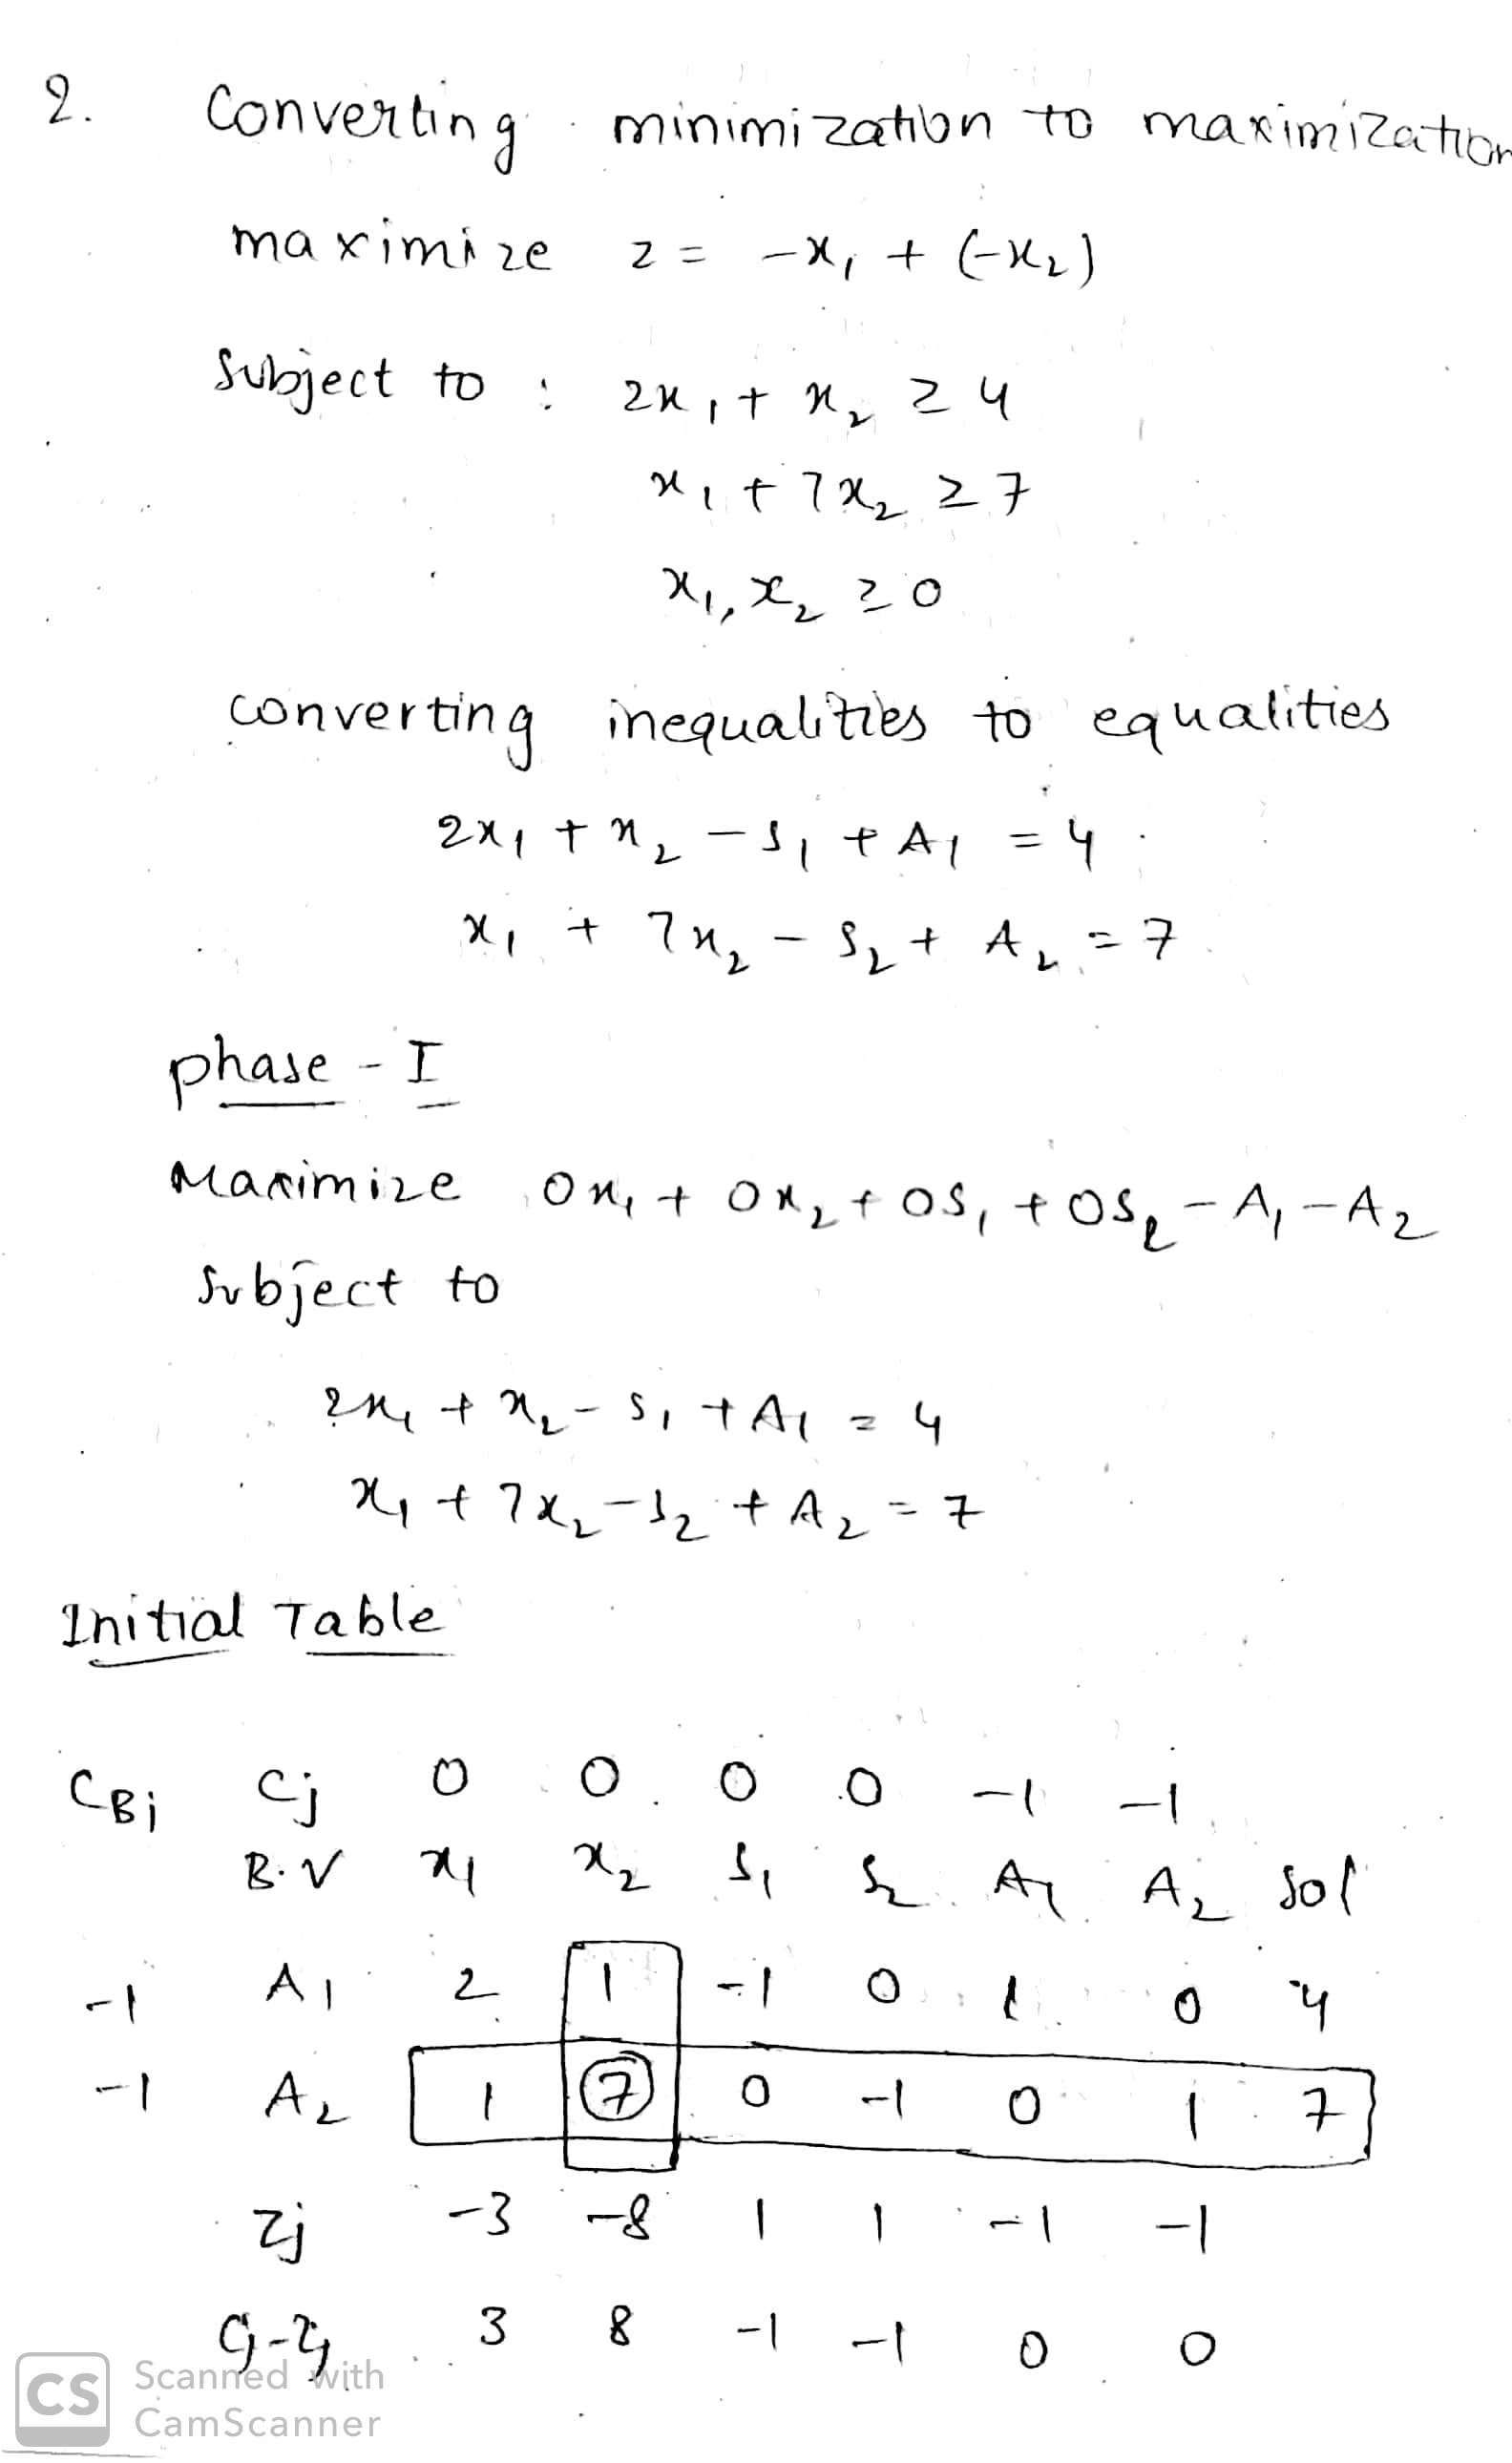 2. Converting minimization to maximization
maximize z = -x₁ + (-x₂)
Subject to : 2x₁ + x₂ ≥ 4
x₁ + 7x₂ ≥ 7
x₁, x₂ ≥ 0
converting inequalities to equalities
2x₁ + x₂ - s₁ + A₁ = 4
x₁ + 7x₂ - s₂ + A₂ = 7
phase - I
Maximize 0x₁ + 0x₂ + 0s₁ + 0s₂ - A₁ - A₂
Subject to
2x₁ + x₂ - s₁ + A₁ = 4
x₁ + 7x₂ - s₂ + A₂ = 7
Initial Table
CBj Cj 0 0 0 0 -1 -1
B.V x₁ x₂ s₁ s₂ A₁ A₂ sol
-1 A₁ 2 1 -1 0 1 0 4
-1 A₂ 1 7 0 -1 0 1 7
Zj -3 -8 1 1 -1 -1
Cj-Zj 3 8 -1 -1 0 0
CS Scanned with
CamScanner